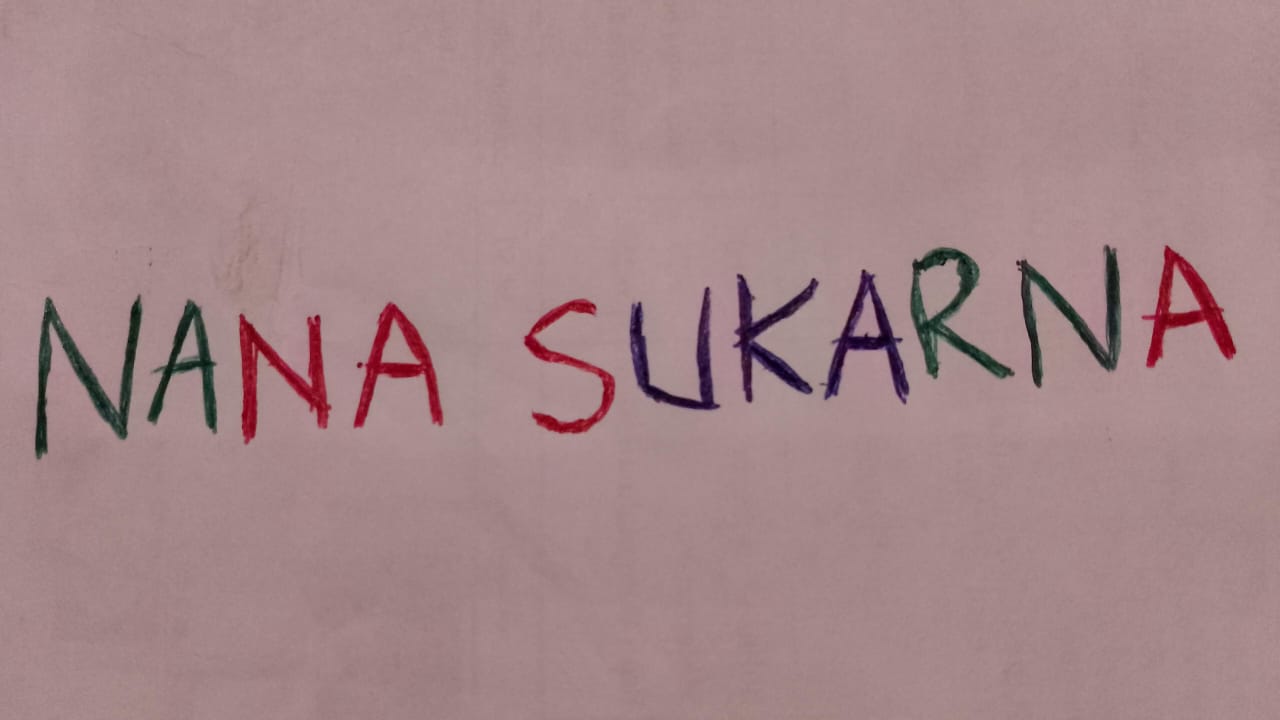 NANA SUKARNA